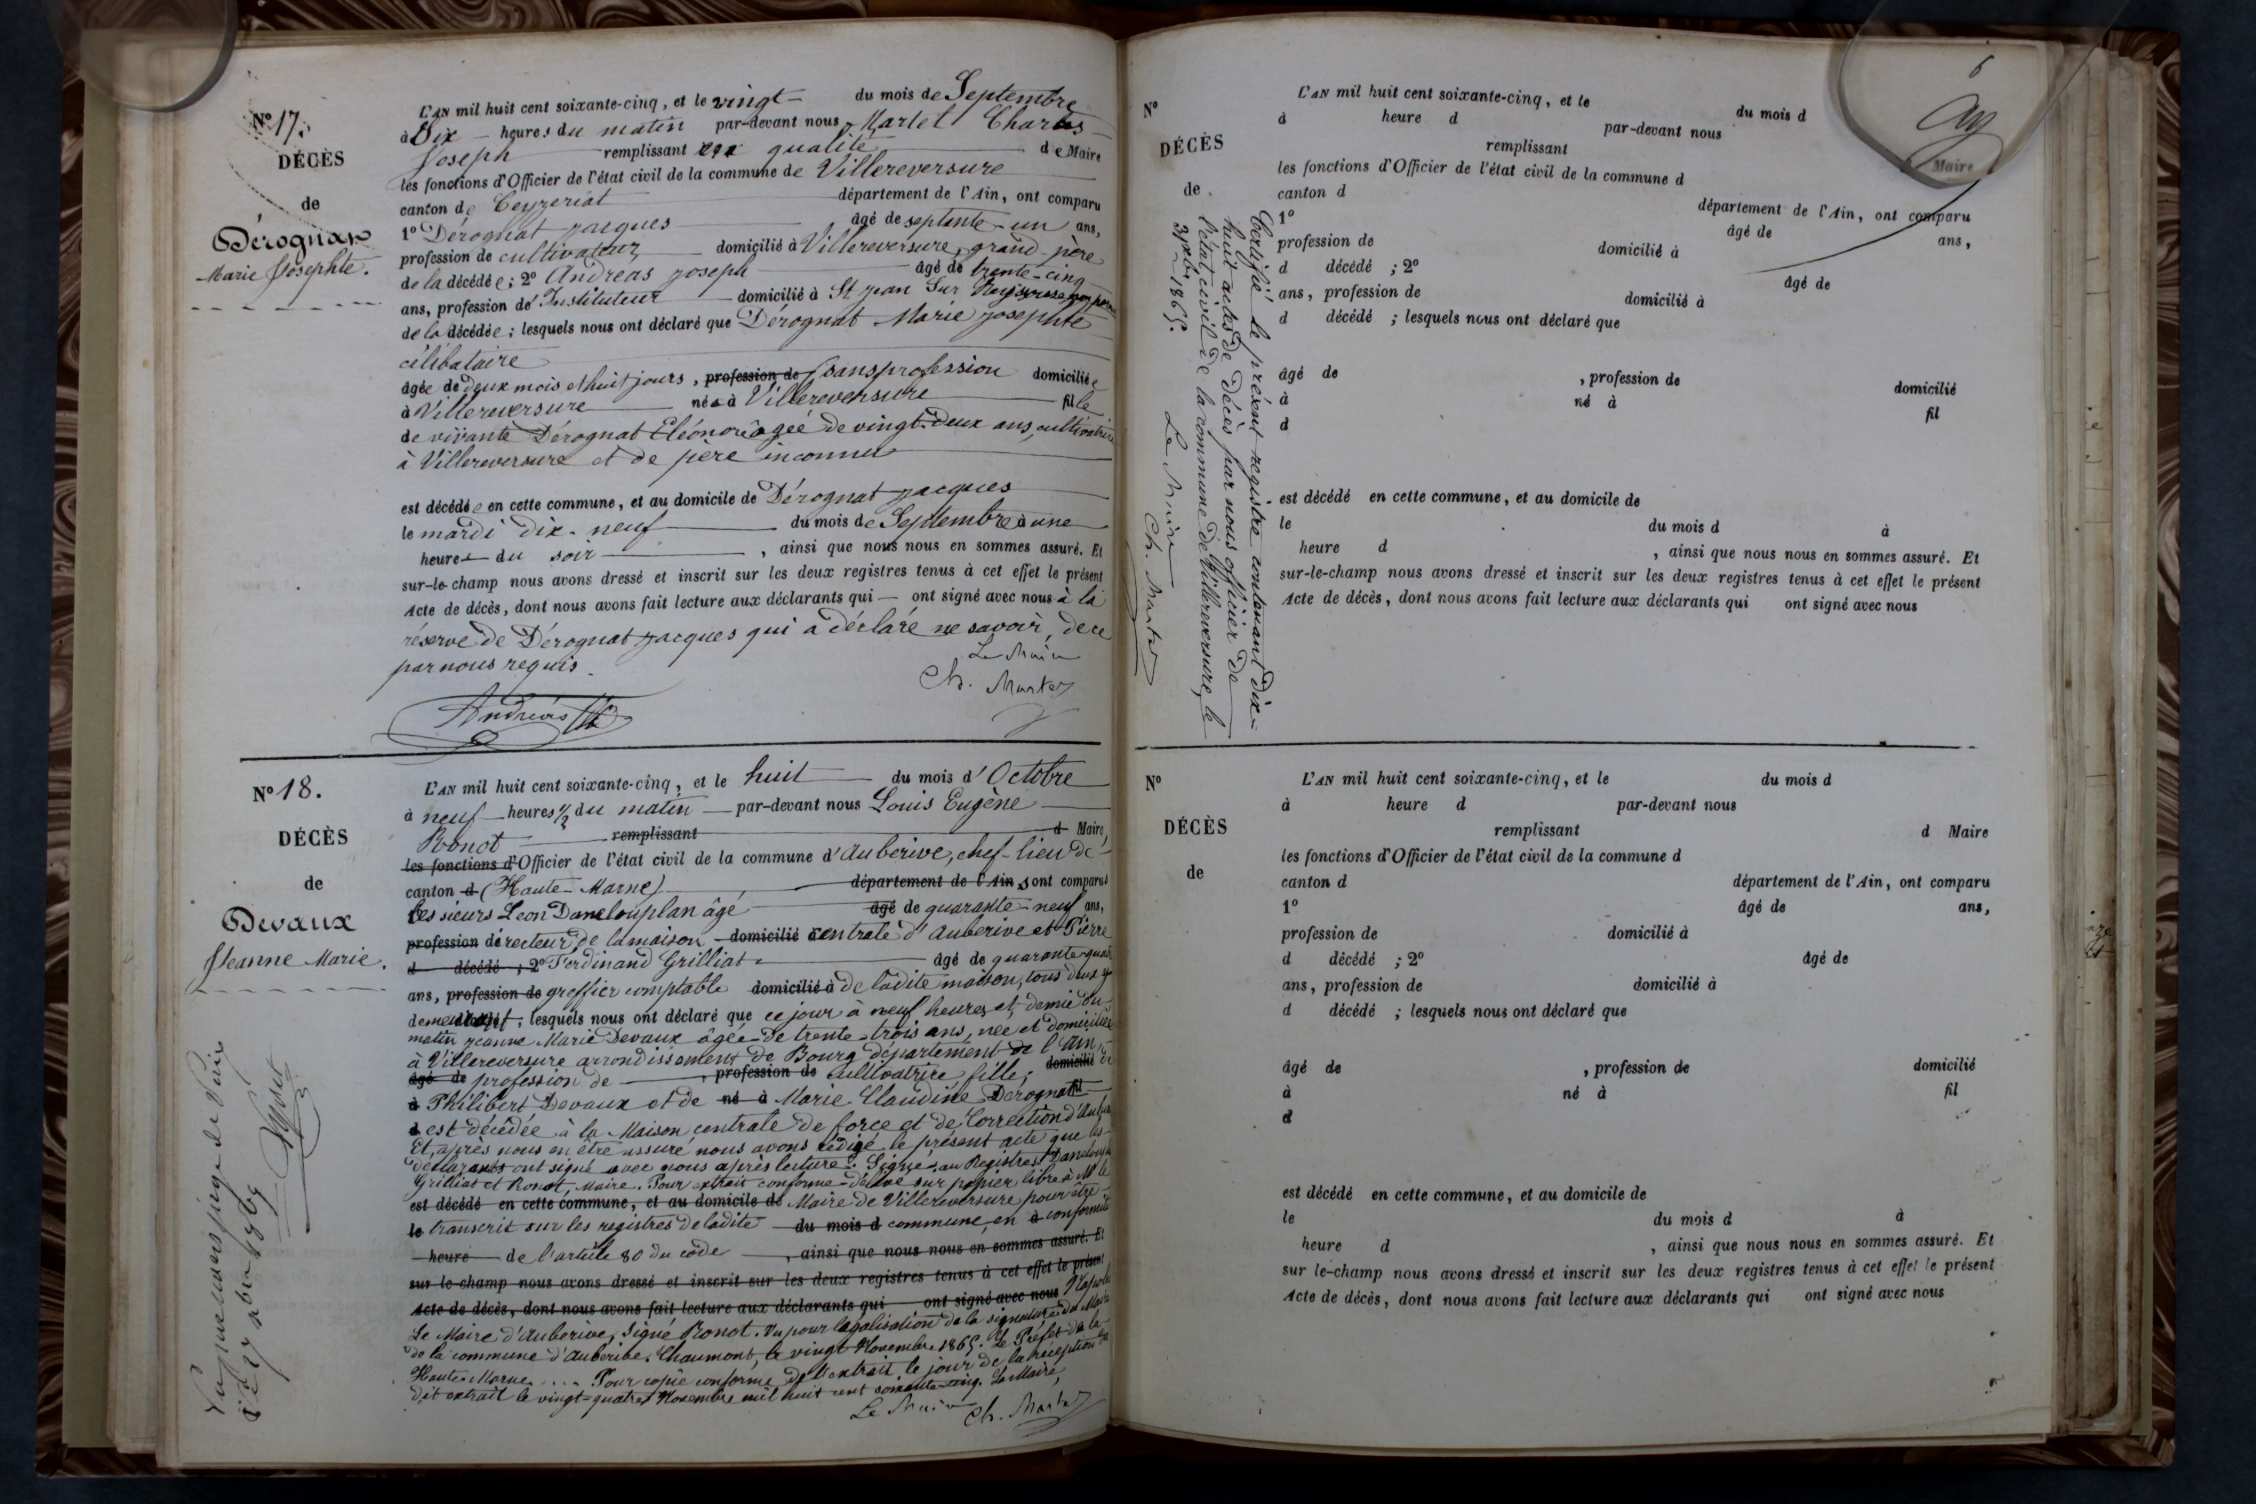 Nº 17.
DÉCÈS
de
Dérognat
Marie Josephte.
L'AN mil huit cent soixante-cinq, et le vingt du mois de Septembre
à Dix heures du matin par-devant nous Martel Charles
Joseph remplissant en qualité de Maire
les fonctions d'Officier de l'état civil de la commune de Villereversure
canton de Ceyzeriat département de l'Ain, ont comparu
1º Dérognat jacques âgé de septante-un ans,
profession de cultivateur domicilié à Villereversure, grand-père
de la décédée ; 2º Andreas joseph âgé de trente-cinq
ans, profession de Instituteur domicilié à St jean Sur
de la décédée ; lesquels nous ont déclaré que Dérognat Marie josephte
célibataire
âgée de deux mois et huit jours, profession de sans profession domiciliée
à Villereversure née à Villereversure fille
de vivante Dérognat Eléonore âgée de vingt-deux ans, cultivatrice
à Villereversure et de père inconnu
est décédée en cette commune, et au domicile de Dérognat jacques
le mardi dix-neuf du mois de Septembre à une
heure du soir, ainsi que nous nous en sommes assuré. Et
sur-le-champ nous avons dressé et inscrit sur les deux registres tenus à cet effet le présent
Acte de décès, dont nous avons fait lecture aux déclarants qui ont signé avec nous à la
réserve de Dérognat jacques qui a déclaré ne savoir, de ce
par nous requis.
Le Maire
Ch. Martel
Andréas
Nº 18.
DÉCÈS
de
Devaux
Jeanne Marie.
L'AN mil huit cent soixante-cinq, et le huit du mois d'Octobre
à neuf heures 1/2 du matin par-devant nous Louis Eugène
Ronot remplissant d Maire,
les fonctions d'Officier de l'état civil de la commune d'Auberive, chef-lieu de
canton d (Haute-Marne) département de l'Ain sont comparus
les sieurs Leon Danelouplan âgé âgé de quarante-neuf ans,
profession directeur de la maison domicilié centrale d'Auberive et Pierre
d décédé ; 2º Ferdinand Grilliat âgé de quarante-quatre
ans, profession de greffier comptable domicilié à de ladite maison, tous deux y
demeurant, lesquels nous ont déclaré que ce jour à neuf heures et demie du
matin jeanne Marie Devaux âgée de trente-trois ans, née et domiciliée
à Villereversure arrondissement de Bourg département de l'Ain,
âgé de profession de , profession de cultivatrice fille, domicilié de
à Philibert Devaux et de né à Marie Claudine Derognat fil
d est décédée à la Maison centrale de force et de Correction d'Auberive
Et, après nous en être assuré nous avons rédigé le présent acte que les
déclarants ont signé avec nous après lecture. Signé au Registres Daneloup
Grilliat et Ronot, Maire. Pour extrait conforme délivré sur papier libre à Mr le
est décédé en cette commune, et au domicile de Maire de Villereversure pour être
le transcrit sur les registres de ladite du mois d commune, en à conformité
heure de l'article 80 du code , ainsi que nous nous en sommes assuré. Et
sur-le-champ nous avons dressé et inscrit sur les deux registres tenus à cet effet le présent
Acte de décès, dont nous avons fait lecture aux déclarants qui ont signé avec nous Napoléon
Le Maire d'Auberive, Signé Ronot. Vu pour légalisation de la signature du Maire
de la commune d'Auberive. Chaumont, le vingt Novembre 1865. Le Préfet de la
Haute-Marne .... Pour copie conforme de l'extrait le jour de la réception du
dit extrait le vingt-quatre Novembre mil huit cent soixante-cinq. Le Maire,
Le Maire Ch. Martel
Vu par nous juge de Paix
6
Nº
DÉCÈS
de
L'AN mil huit cent soixante-cinq, et le du mois d
à heure d par-devant nous
remplissant Maire
les fonctions d'Officier de l'état civil de la commune d
canton d département de l'Ain, ont comparu
1º âgé de ans,
profession de domicilié à
d décédé ; 2º âgé de
ans, profession de domicilié à
d décédé ; lesquels nous ont déclaré que
âgé de , profession de domicilié
à né à fil
d
est décédé en cette commune, et au domicile de
le du mois d à
heure d , ainsi que nous nous en sommes assuré. Et
sur-le-champ nous avons dressé et inscrit sur les deux registres tenus à cet effet le présent
Acte de décès, dont nous avons fait lecture aux déclarants qui ont signé avec nous
Certifié le présent registre contenant dix-
huit actes de Décès par nous officier de
l'état civil de la commune de Villereversure, le
31 Xbre 1865.
Le Maire
Ch. Martel
Nº
DÉCÈS
de
L'AN mil huit cent soixante-cinq, et le du mois d
à heure d par-devant nous
remplissant d Maire
les fonctions d'Officier de l'état civil de la commune d
canton d département de l'Ain, ont comparu
1º âgé de ans,
profession de domicilié à
d décédé ; 2º âgé de
ans, profession de domicilié à
d décédé ; lesquels nous ont déclaré que
âgé de , profession de domicilié
à né à fil
d
est décédé en cette commune, et au domicile de
le du mois d à
heure d , ainsi que nous nous en sommes assuré. Et
sur le-champ nous avons dressé et inscrit sur les deux registres tenus à cet effet le présent
Acte de décès, dont nous avons fait lecture aux déclarants qui ont signé avec nous